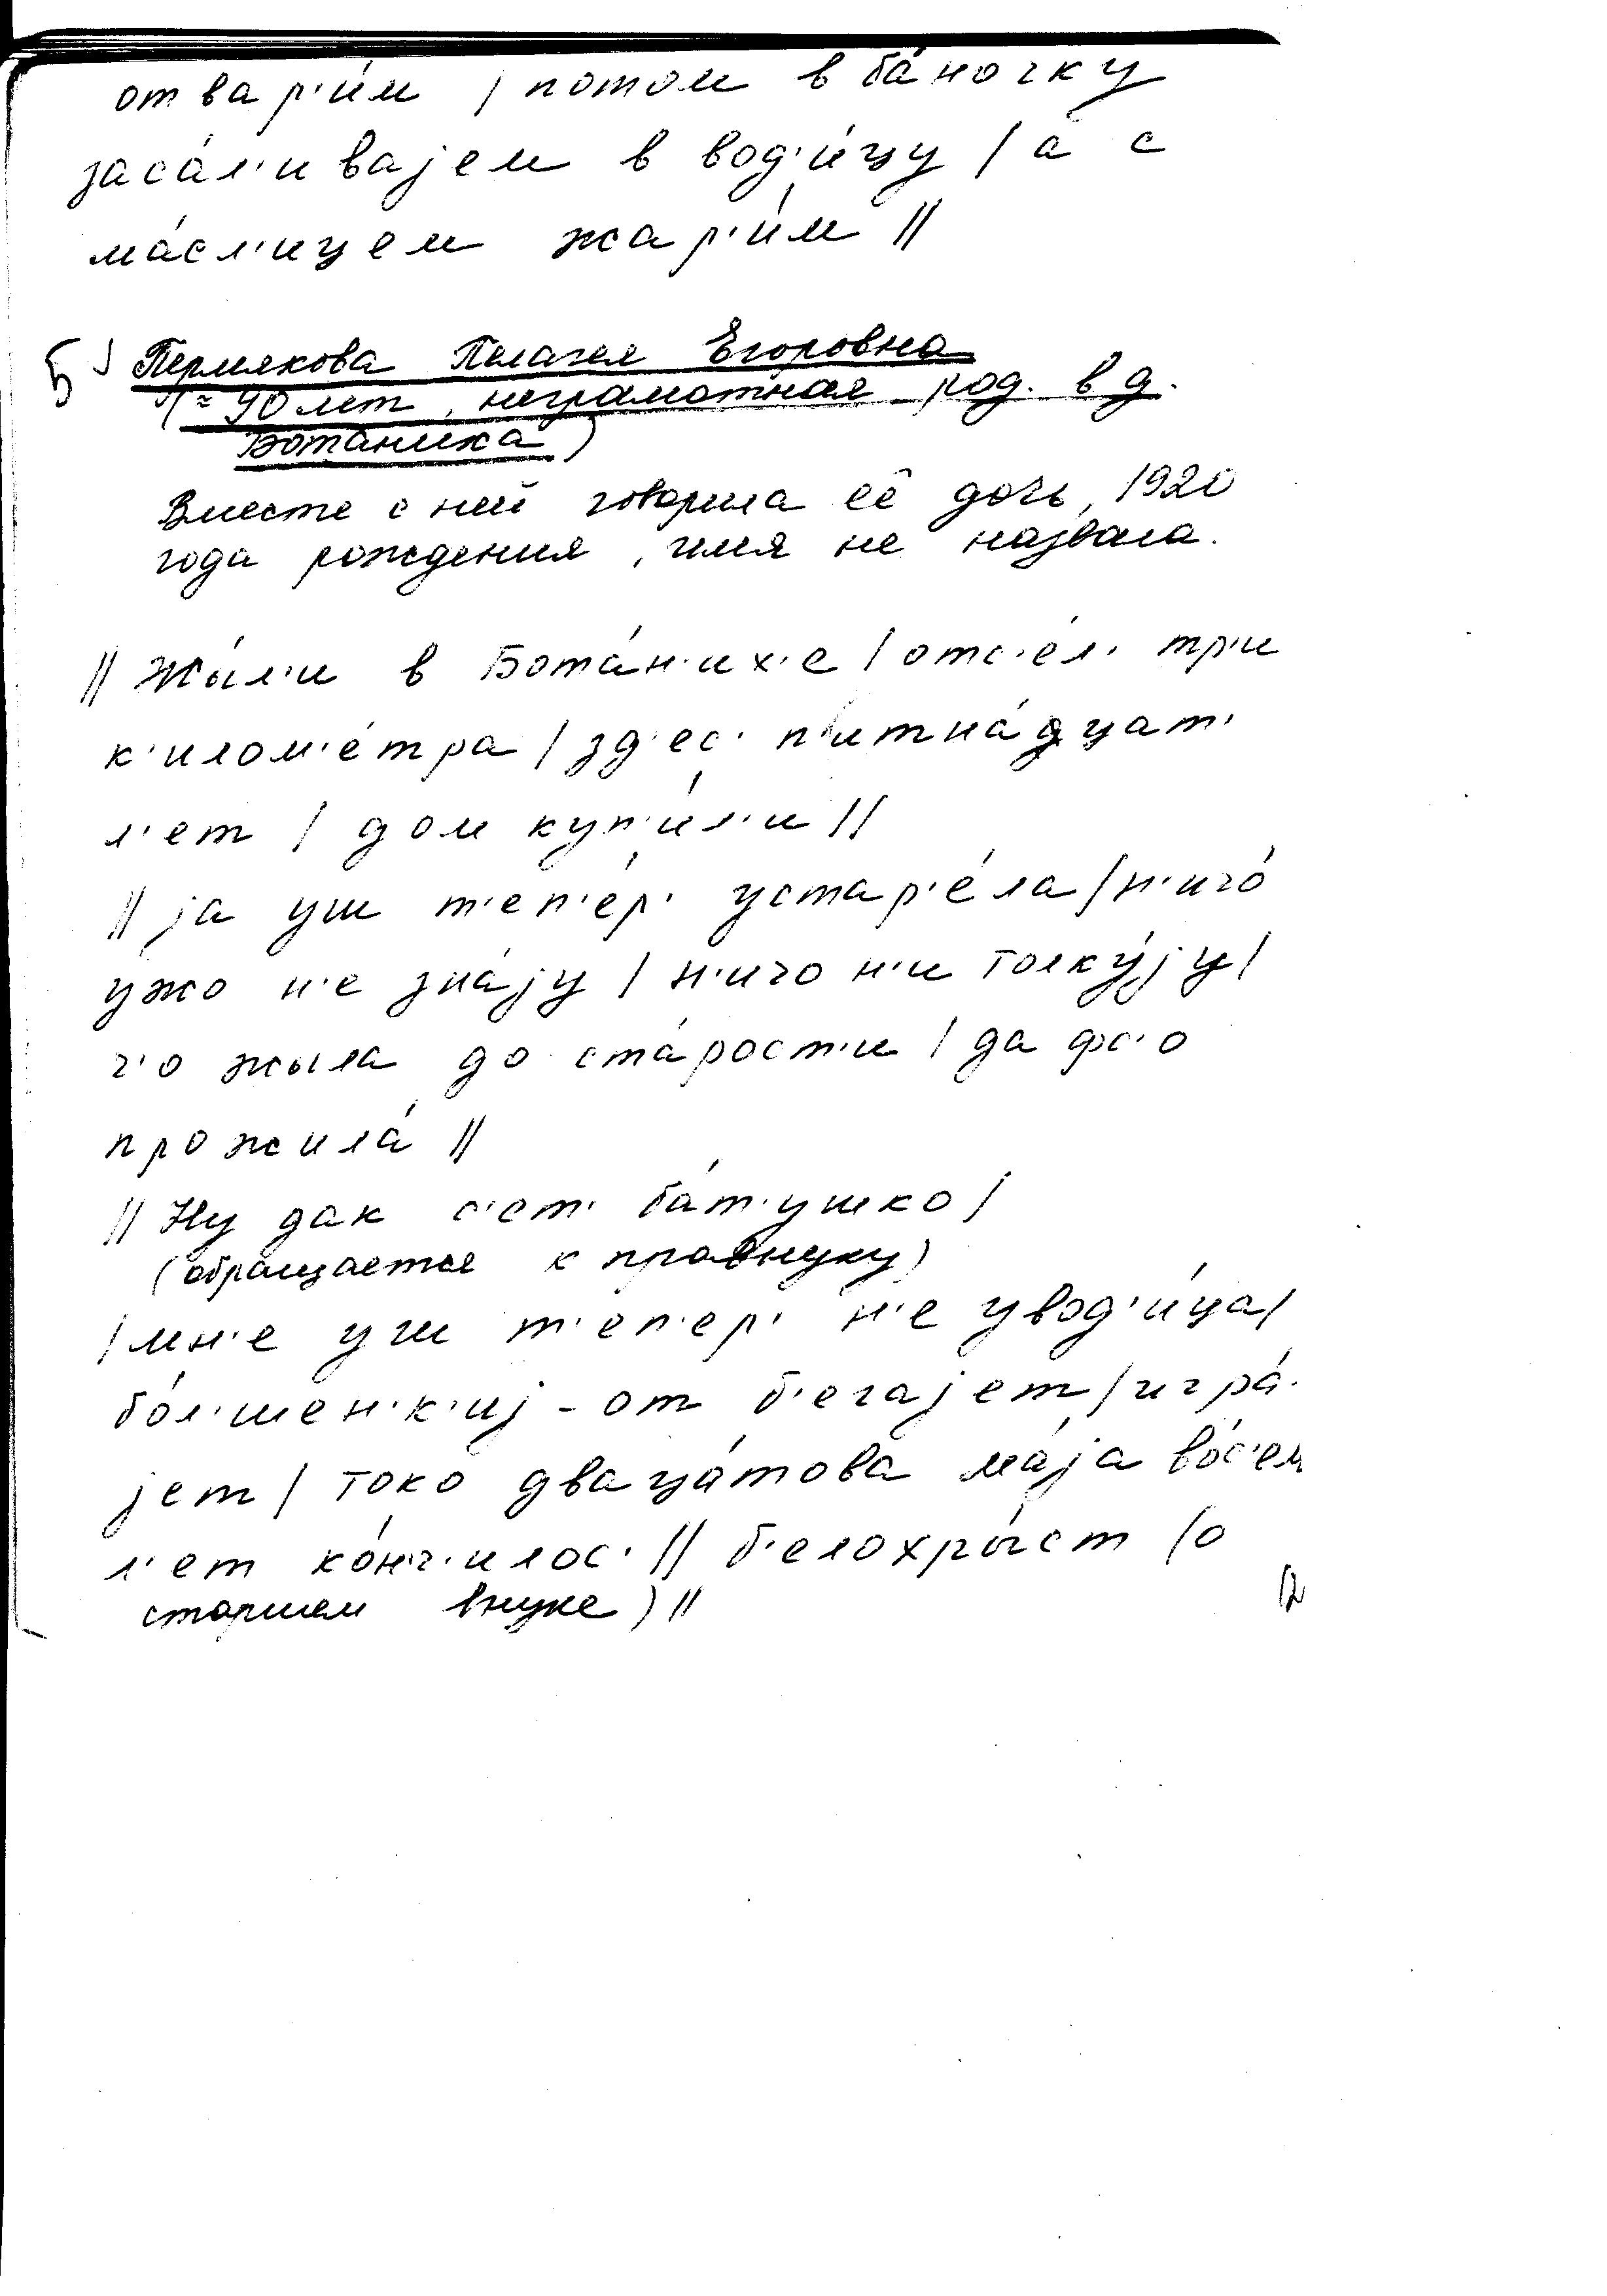 отвар'и́м / потом в ба́ночку
заса́л'ивајем в вод'и́цу / а с
ма́сл'ицем жар'и́м //
5) Пермякова Пелагея Егоровна
(≈ 90 лет, неграмотная род. в д.
Ботаниха)
Вместе с ней говорила её дочь, 1920
года рождения, имя не назвала.
// Жы́л'и в Бота́н'их'е / отс'е́л' тр'и
к'илом'е́тра / зд'ес' п'итна́дцат'
л'ет / дом куп'и́л'и //
// ја уш т'еп'е́р' устар'е́ла / н'ичо́
ужо н'е зна́ју / н'ичо н'и толку́ју /
ч'о жыла до ста́рост'и / да фс'о
прожила́ //
// Ну дак с'ет' ба́т'ушко /
(обращается к правнуку)
/ мн'е уш т'еп'ер' н'е увод'и́ца /
бо́л'шен'к'иј - от б'егајет / игра́-
јет / токо двацáтова ма́ја во́с'ем
л'ет ко́нч'илос' // б'елохры́ст (о
старшем внуке) //
12